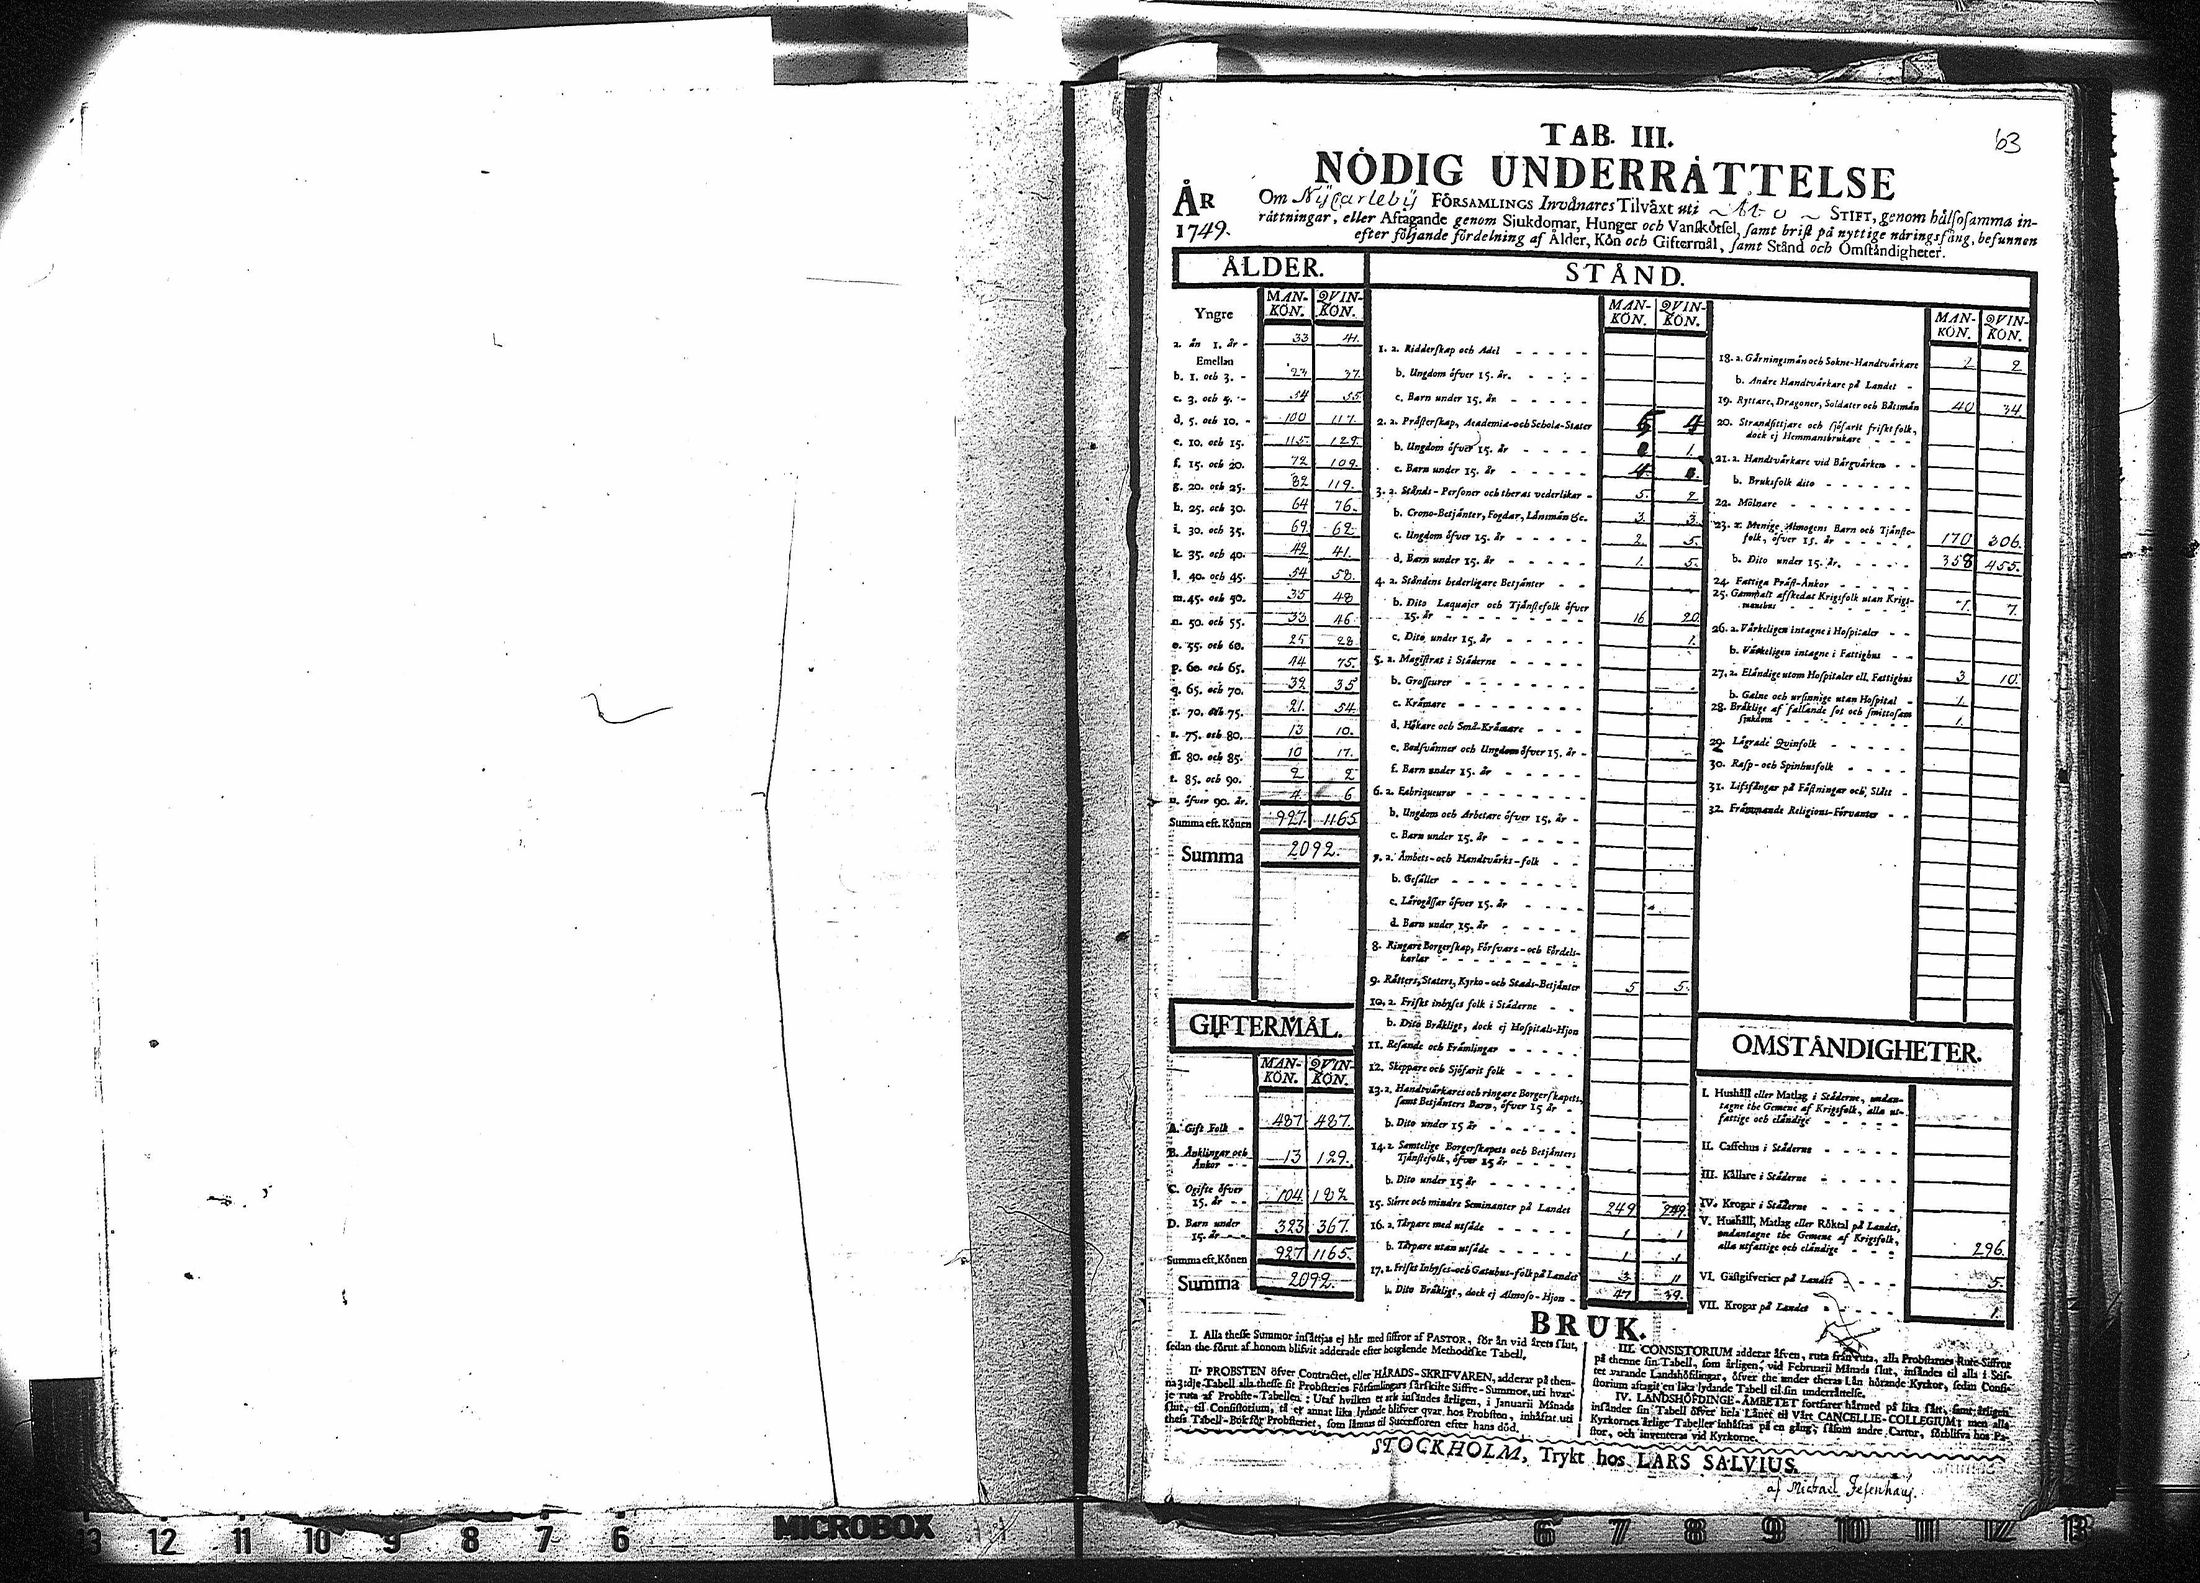 63
TAB. III.
NÖDIG UNDERRÄTTELSE
ÅR 1749.
Om Nÿcarlebÿ FÖRSAMLINGS Invånares Tilväxt uti ~ Åbo ~ STIFT, genom hälsosamma in-
rättningar, eller Aftagande genom Siukdomar, Hunger och Vanskötsel, samt brist på nyttige näringsfång, befunnen
efter följande fördelning af Ålder, Kön och Giftermål, samt Stånd och Omständigheter.
ÅLDER.
MAN-KÖN. QVIN-KÖN.
Yngre
a. än 1. år - 33 41.
Emellan
b. 1. och 3. - 23 37.
c. 3. och 5. - 54 55.
d. 5. och 10. - 100 117.
e. 10. och 15. 115. 129.
f. 15. och 20. 72 109.
g. 20. och 25. 82 119.
h. 25. och 30. 64 76.
i. 30. och 35. 69. 62.
k. 35. och 40. 42 41.
l. 40. och 45. 54 58.
m. 45. och 50. 35 48
n. 50. och 55. 33 46
o. 55. och 60. 25 28
p. 60. och 65. 44 75.
q. 65. och 70. 39. 35
r. 70. och 75. 21. 54.
s. 75. och 80. 13 10.
ff. 80. och 85. 10 17.
t. 85. och 90. 2 2
u. öfver 90. år. 4 6
Summa eft. Könen 927. 1165
Summa 2092.
GIFTERMÅL.
MAN-KÖN. QVIN-KÖN.
A. Gift Folk - 487 487.
B. Änklingar och
Änkor - - 13 129.
C. Ogifte öfver
15. år - - 104 182
D. Barn under
15. år - - 323 367.
Summa eft. Könen 927 1165.
Summa 2092.
STÅND.
MAN-KÖN. QVIN-KÖN.
1. a. Ridderskap och Adel
b. Ungdom öfver 15. år.
c. Barn under 15. år
2. a. Prästerskap, Academia- och Schola-Stater 5 4
b. Ungdom öfver 15. år 1.
c. Barn under 15. år 4.
3. a. Stånds-Personer och theras vederlikar - 5. 2
b. Crono-Betjänter, Fogdar, Länsmän &c. 3. 3.
c. Ungdom öfver 15. år 2. 5.
d. Barn under 15. år 1. 5.
4. a. Ståndens hederligare Betjänter
b. Dito Laquajer och Tjänstefolk öfver
15. år 16 20.
c. Dito under 15. år 1.
5. a. Magistrat i Städerne
b. Grosseurer
c. Krämare
d. Hökare och Små-Krämare
e. Bodsvänner och Ungdom öfver 15. år -
f. Barn under 15. år
6. a. Fabriqueurer
b. Ungdom och Arbetare öfver 15. år -
c. Barn under 15. år
7. a. Ämbets- och Handtvärks-folk
b. Gesäller
c. Lärogässar öfver 15. år
d. Barn under 15. år
8. Ringare Borgerskap, Försvars- och Fördels-
karlar
9. Rätters, Staters, Kyrko- och Stads-Betjänter 5 5.
10. a. Friskt inhyses folk i Städerne
b. Dito Bräkligt, dock ej Hospitals-Hjon
11. Resande och Främlingar
12. Skeppare och Sjöfarit folk
13. a. Handtvärkares och ringare Borgerskapets,
samt Betjänters Barn, öfver 15 år
b. Dito under 15 år
14. a. Samtelige Borgerskapets och Betjänters
Tjänstefolk, öfver 15 år
b. Dito under 15 år
15. Större och mindre Seminanter på Landet 249 249.
16. a. Tårpare med utsäde 1 1
b. Tårpare utan utsäde 1 1
17. a. Friskt Inhyses- och Gatuhus-folk på Landet 3. 11
b. Dito Bräkligt, dock ej Almoso-Hjon - 47 39.
MAN-KÖN. QVIN-KÖN.
18. a. Gärningsmän och Sokne-Handtvärkare 2 2
b. Andre Handtvärkare på Landet -
19. Ryttare, Dragoner, Soldater och Båtsmän 40 34
20. Strandsittjare och sjöfarit friskt folk,
dock ej Hemmansbrukare
21. a. Handtvärkare vid Bärgvärken
b. Bruksfolk dito
22. Mölnare
23. a. Menige Almogens Barn och Tjänste-
folk, öfver 15. år 170 306.
b. Dito under 15. år. 358 455.
24. Fattiga Präst-Änkor
25. Gammalt afskedat Krigsfolk utan Krigs-
manshus 7. 7.
26. a. Värkeligen intagne i Hospitaler
b. Värkeligen intagne i Fattighus
27. a. Eländige utom Hospitaler ell. Fattighus 3 10.
b. Galne och ursinnige utan Hospital - 1.
28. Bräklige af fallande sot och smittosam
sjukdom 1.
29. Lägrade Qvinfolk
30. Rasp- och Spinhusfolk
31. Lifsfångar på Fästningar och Slått -
32. Främmande Religions-Förvanter
OMSTÄNDIGHETER.
I. Hushåll eller Matlag i Städerne, undan-
tagne the Gemene af Krigsfolk, alla ut-
fattige och eländige
II. Caffehus i Städerne
III. Källare i Städerne
IV. Krogar i Städerne
V. Hushåll, Matlag eller Röktal på Landet,
undantagne the Gemene af Krigsfolk,
alla utfattige och eländige 296.
VI. Gästgifverier på Landet 5.
VII. Krogar på Landet 1.
BRUK.
I. Alla thesse Summor insättjas ej här med siffror af PASTOR, för än vid årets slut,
sedan the förut af honom blifvit adderade efter hosgående Methodiske Tabell.
II. PROBSTEN öfver Contractet, eller HÄRADS-SKRIFVAREN, adderar på then-
na 3:dje Tabell alla thesse sit Probsteries Församlingars särskilte Siffre-Summor, uti hvar-
je ruta af Probste-Tabellen: Utaf hvilken et ark insändes årligen, i Januarii Månads
slut, til Consistorium, til et annat lika lydande blifver qvar hos Probsten, inhäftat uti
thess Tabell-Bok för Probsteriet, som lämnas til Successoren efter hans död.
III. CONSISTORIUM adderar äfven, ruta från ruta, alla Probstarnes Rute-Siffror
på thenne sin Tabell, som årligen, vid Februarii Månads slut, insändes til alla i Stif-
tet varande Landshöfdingar, öfver the under theras Län hörande Kyrkor, sedan Consi-
storium aftagit en lika lydande Tabell til sin underrättelse.
IV. LANDSHÖFDINGE-ÄMBETET fortfarer härmed på lika sätt, samt årligen
insänder sin Tabell öfver hela Länet til Vårt CANCELLIE-COLLEGIUM; men alla
Kyrkornes årlige Tabeller inhäftas på en gång, såsom andre Cartor, förblifva hos Pa-
stor, och inventeras vid Kyrkorne.
STOCKHOLM, Trykt hos LARS SALVIUS.
af Michael
13 12 11 10 9 8 7 6 MICROBOX 6 7 8 9 10 11 12 13